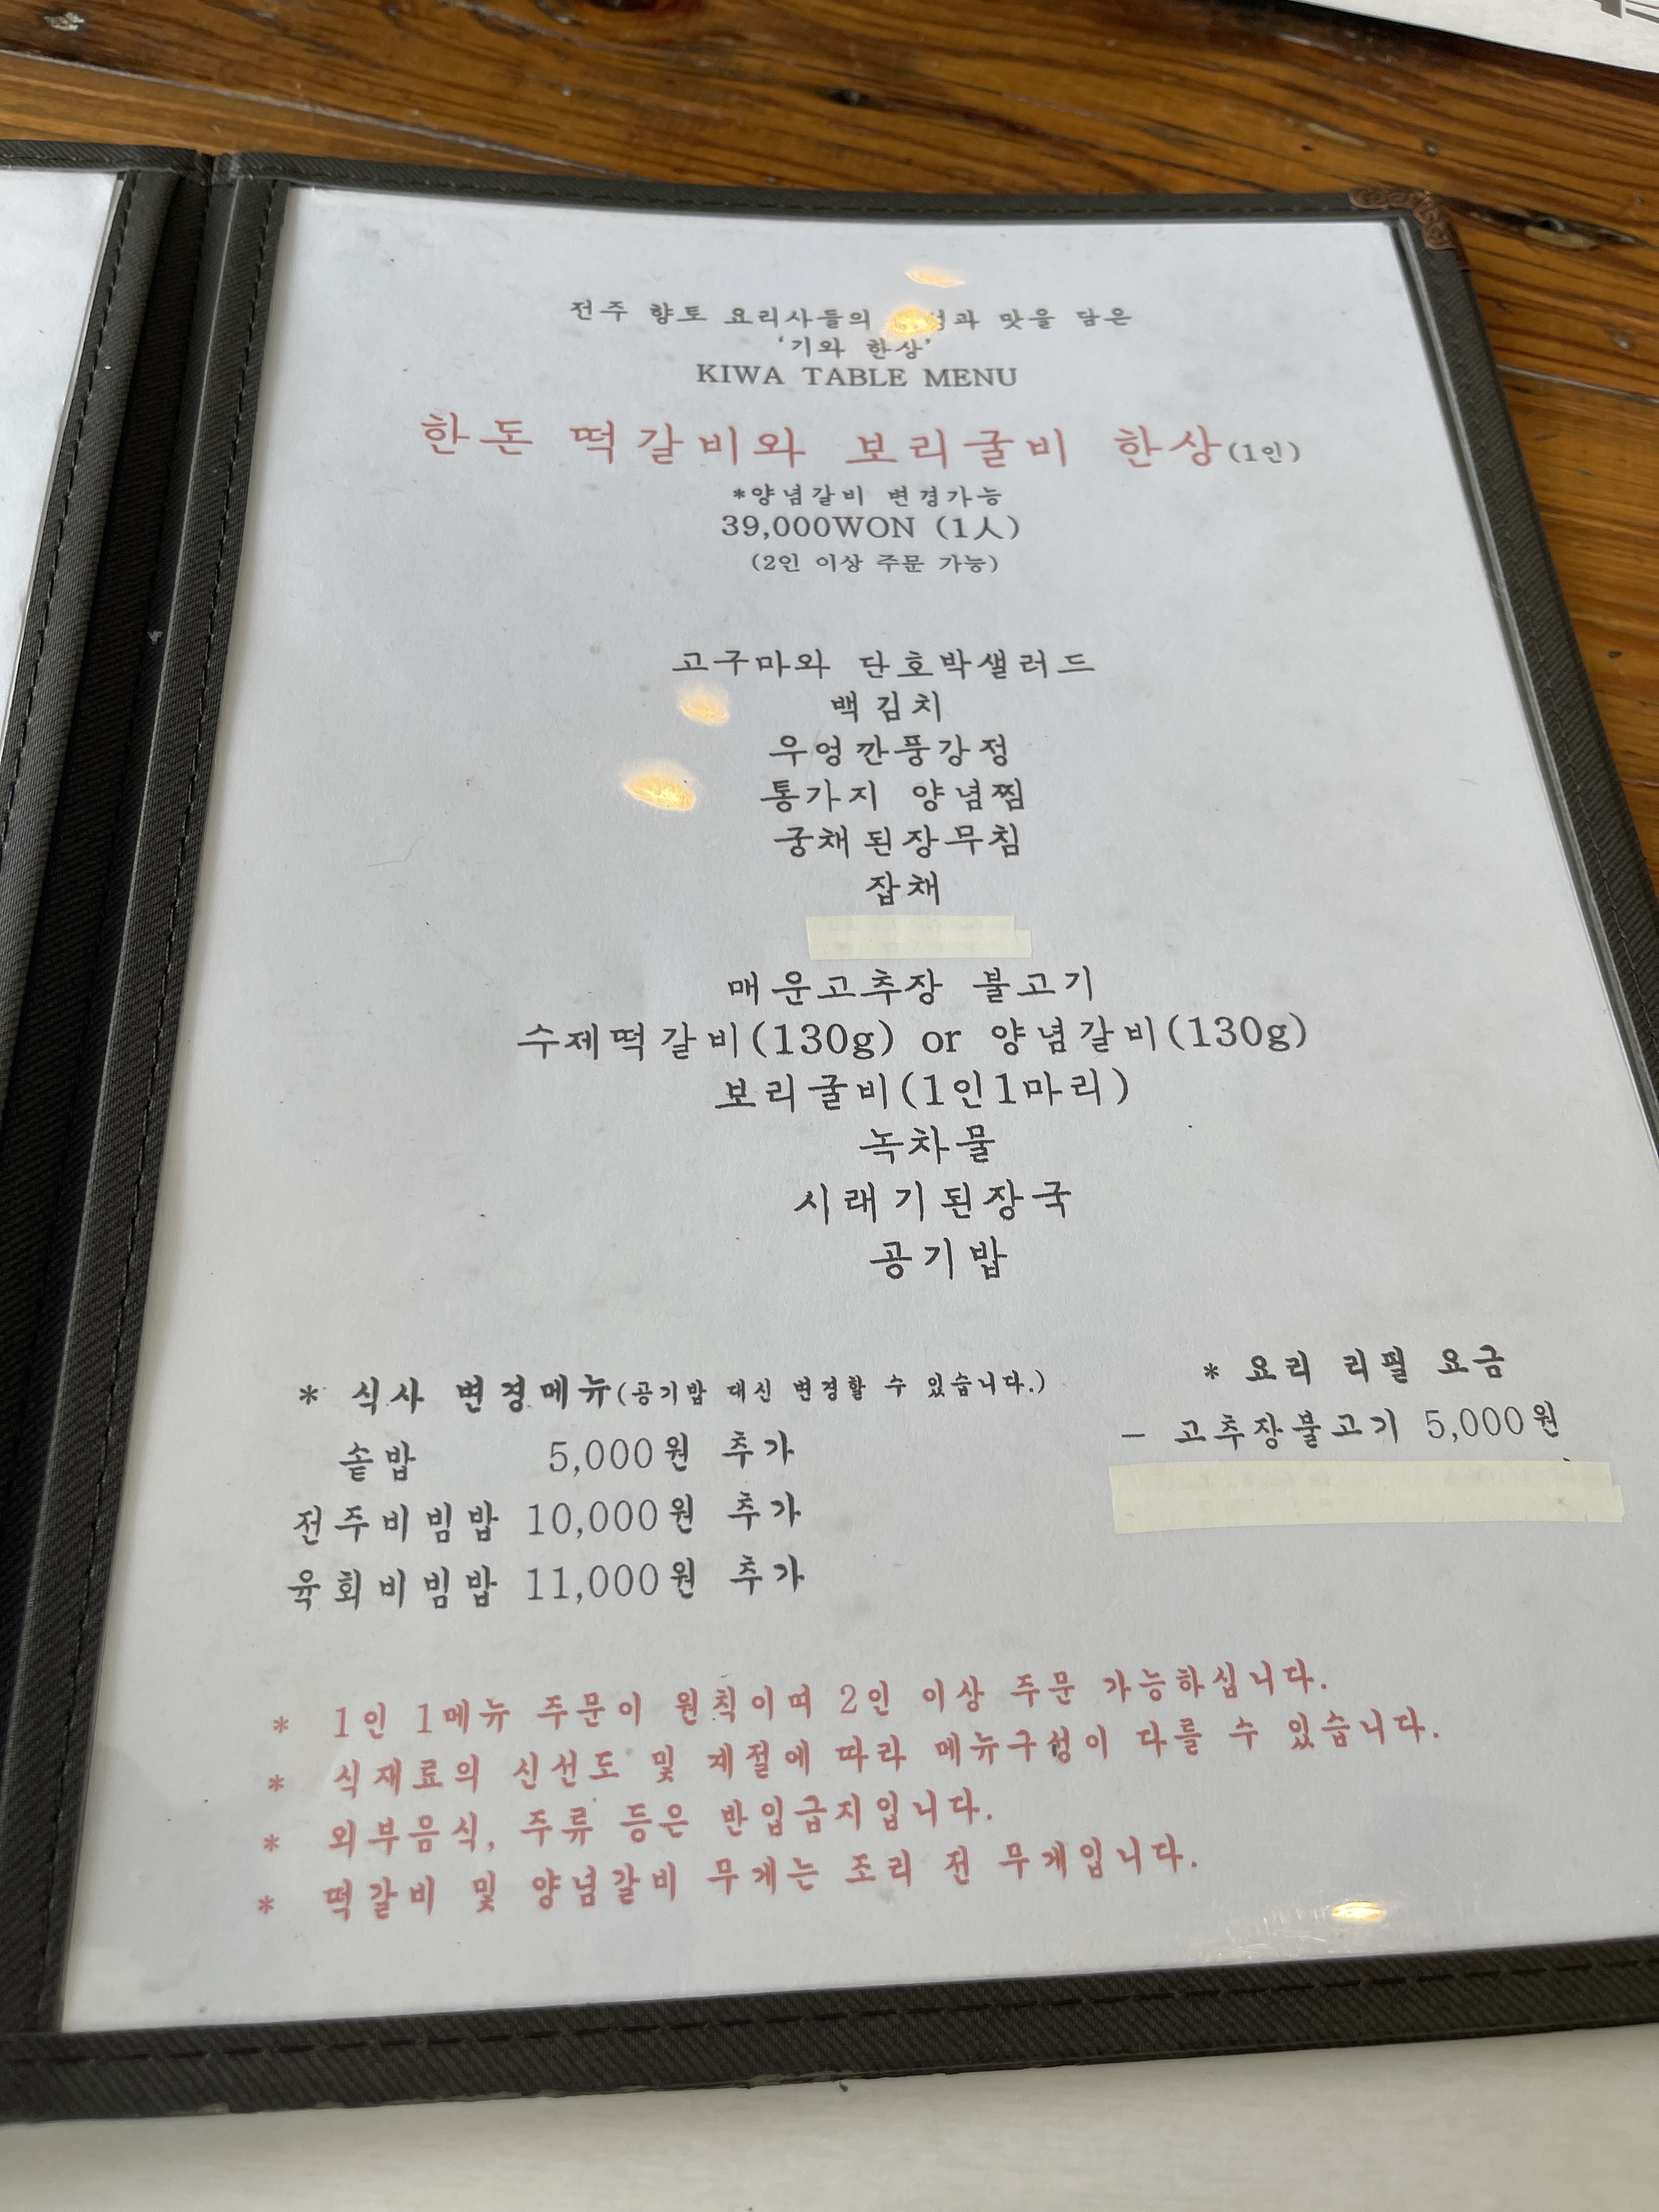 전주 향토 요리사들의 과 맛을 담은
'기와 한상'
KIWA TABLE MENU
한돈 떡갈비와 보리굴비 한상(1인)
*양념갈비 변경가능
39,000WON (1人)
(2인 이상 주문 가능)
고구마와 단호박샐러드
백김치
우엉깐풍강정
통가지 양념찜
궁채된장무침
잡채
매운고추장 불고기
수제떡갈비(130g) or 양념갈비(130g)
보리굴비(1인1마리)
녹차물
시래기된장국
공기밥
* 식사 변경메뉴(공기밥 대신 변경할 수 있습니다.)
솥밥 5,000원 추가
전주비빔밥 10,000원 추가
육회비빔밥 11,000원 추가
* 요리 리필 요금
- 고추장불고기 5,000원
* 1인 1메뉴 주문이 원칙이며 2인 이상 주문 가능하십니다.
* 식재료의 신선도 및 계절에 따라 메뉴구성이 다를 수 있습니다.
* 외부음식, 주류 등은 반입금지입니다.
* 떡갈비 및 양념갈비 무게는 조리 전 무게입니다.